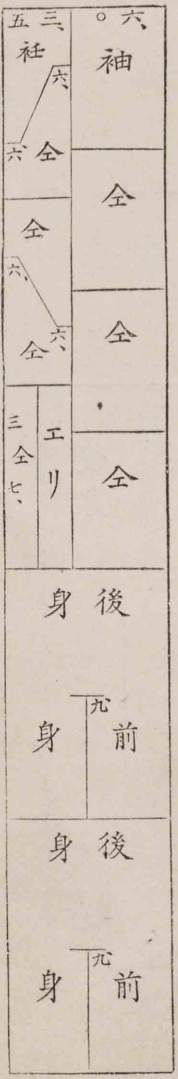 六、〇
袖
仝
仝
仝
三、五
衽
六、
六、
仝
仝
六、
六、
仝
エリ
仝
三七、
後身
九、
前身
後身
九、
前身